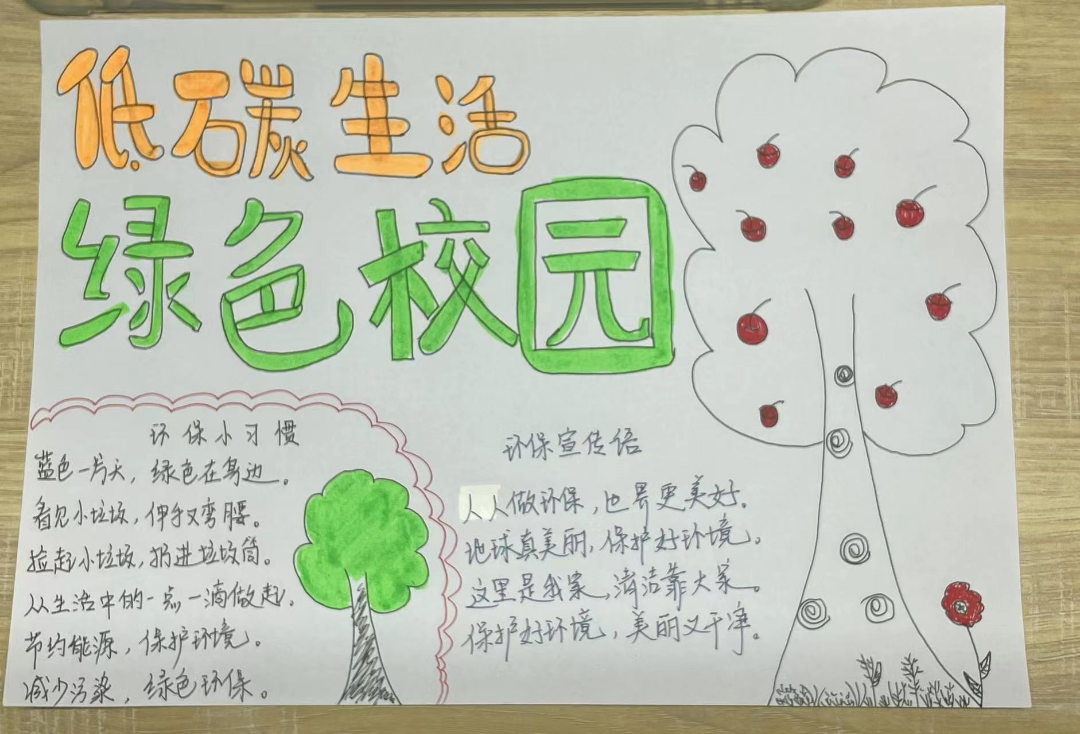 低碳生活
绿色校园
环保小习惯
蓝色一片天，绿色在身边。
看见小垃圾，伸手又弯腰。
捡起小垃圾，扔进垃圾筒。
从生活中的一点一滴做起，
节约能源，保护环境。
减少污染，绿色环保。
环保宣传语
人人做环保，世界更美好。
地球真美丽，保护好环境。
这里是我家，清洁靠大家。
保护好环境，美丽又干净。